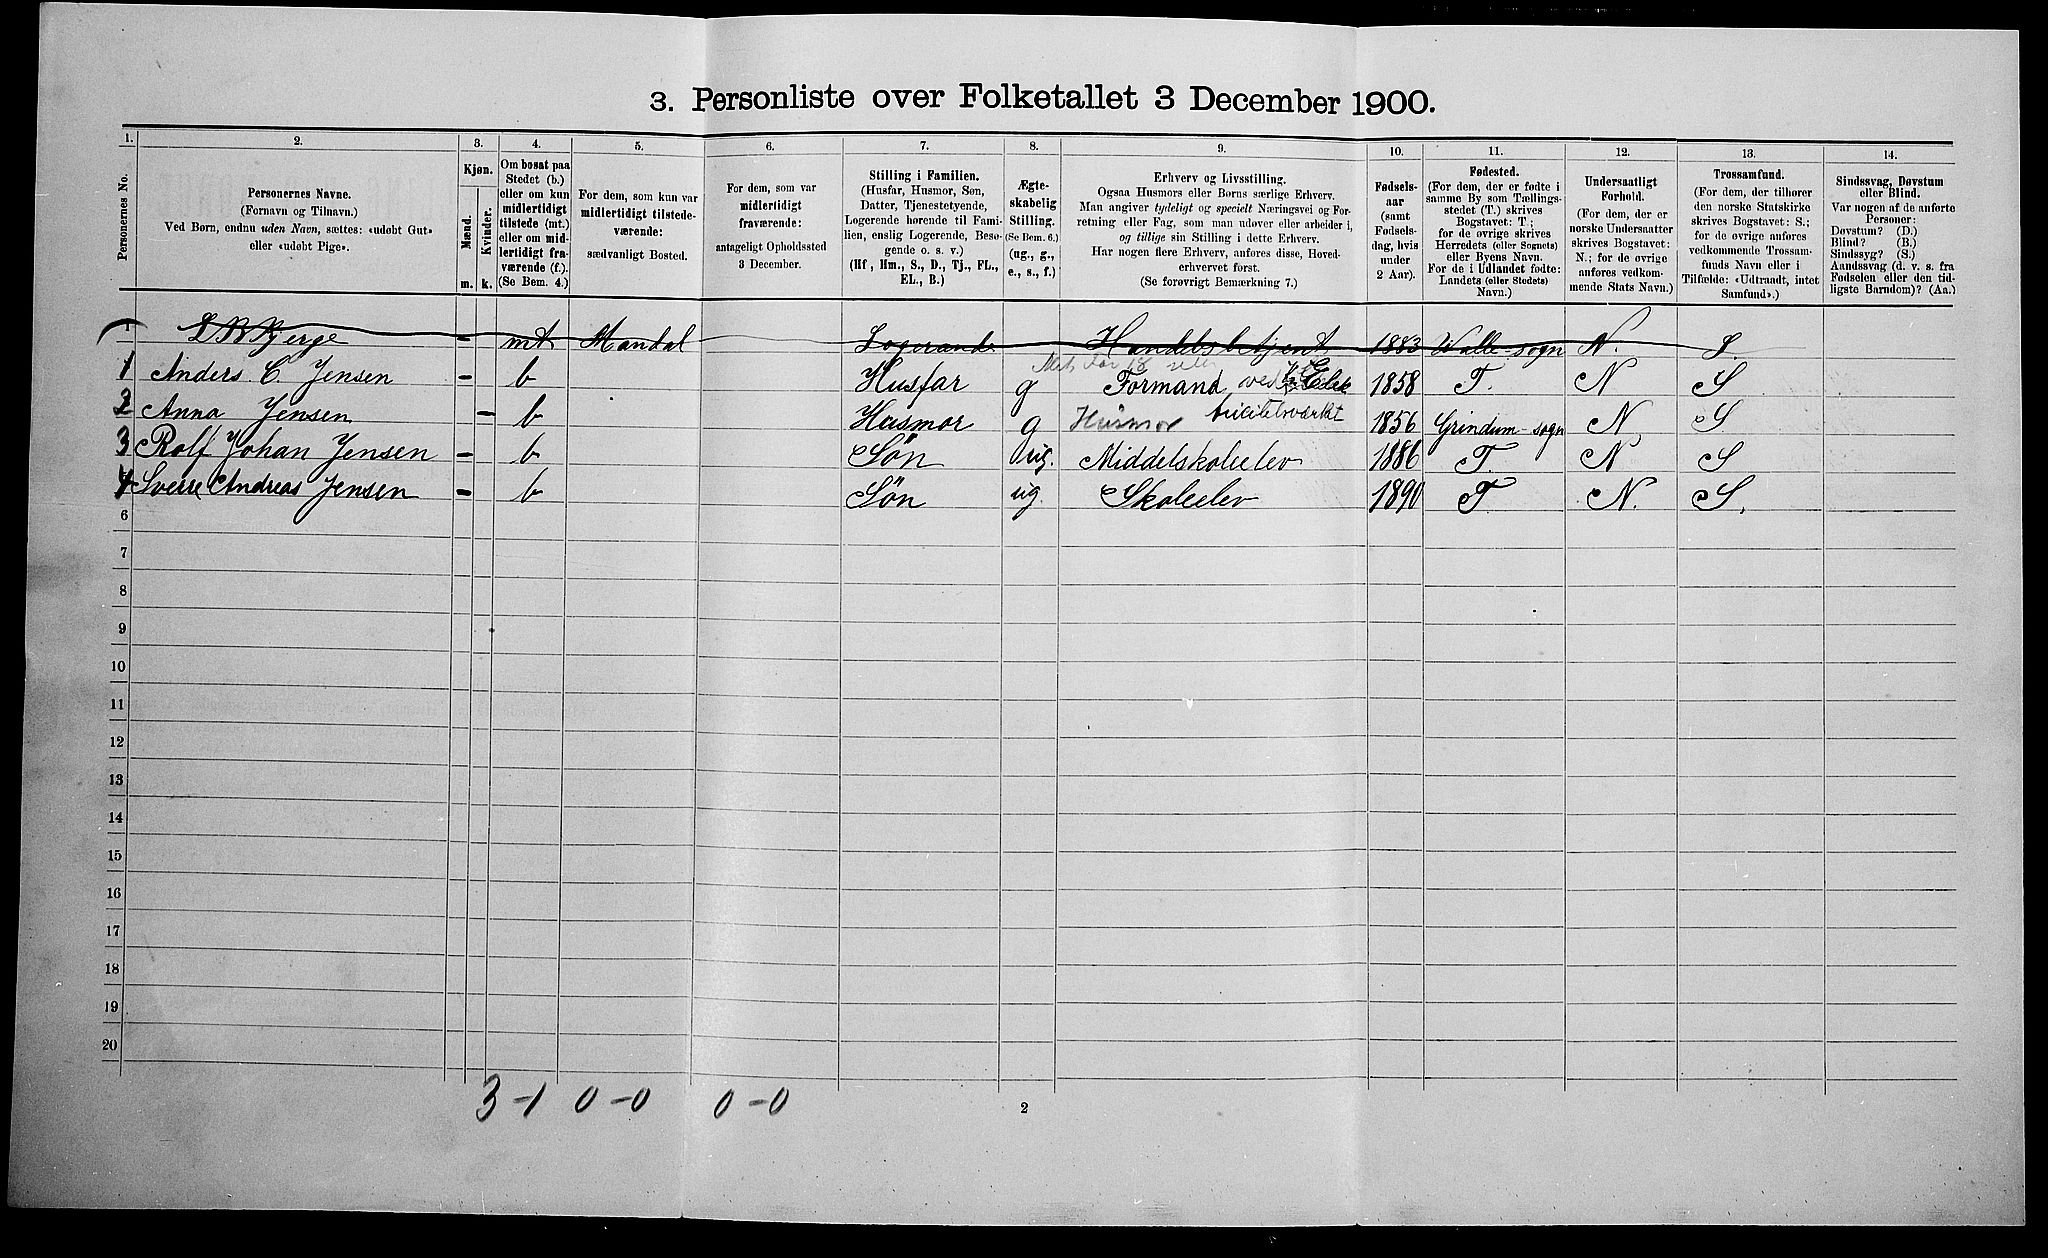 3. Personliste over Folketallet 3 December 1900.
1. 2. 3. 4. 5. 6. 7. 8. 9. 10. 11. 12. 13. 14.
Personernes No.
Personernes Navne.
(Fornavn og Tilnavn.)
Ved Børn, endnu uden Navn, sættes: «udøbt Gut»
eller «udøbt Pige».
Kjøn.
Mænd. Kvinder.
m. k.
Om bosat paa
Stedet (b.)
eller om kun
midlertidigt
tilstede (mt.)
eller om mid-
lertidigt fra-
værende (f.).
(Se Bem. 4.)
For dem, som kun var
midlertidigt tilstede-
værende:
sædvanligt Bosted.
For dem, som var
midlertidigt
fraværende:
antageligt Opholdssted
3 December.
Stilling i Familien.
(Husfar, Husmor, Søn,
Datter, Tjenestetyende,
Logerende hørende til Fami-
lien, enslig Logerende, Besø-
gende o. s. v.)
(Hf, Hm., S., D., Tj., FL.,
EL., B.)
Ægte-
skabelig
Stilling.
(Se Bem. 6.)
(ug., g.,
e., s., f.)
Erhverv og Livsstilling.
Ogsaa Husmors eller Børns særlige Erhverv.
Man angiver tydeligt og specielt Næringsvei og For-
retning eller Fag, som man udøver eller arbeider i,
og tillige sin Stilling i dette Erhverv.
Har nogen flere Erhverv, anføres disse, Hoved-
erhvervet først.
(Se forøvrigt Bemærkning 7.)
Fødsels-
aar
(samt
Fødsels-
dag, hvis
under
2 Aar).
Fødested.
(For dem, der er fødte i
samme By som Tællings-
stedet (T.) skrives
Bogstavet: T;
for de øvrige skrives
Herredets (eller Sognets)
eller Byens Navn.
For de i Udlandet fødte:
Landets (eller Stedets)
Navn.)
Undersaatligt
Forhold.
(For dem, der er
norske Undersaatter
skrives Bogstavet:
N.; for de øvrige
anføres vedkom-
mende Stats Navn.)
Trossamfund.
(For dem, der tilhører
den norske Statskirke
skrives Bogstavet: S.;
for de øvrige anføres
vedkommende Trossam-
funds Navn eller i
Tilfælde: «Udtraadt, intet
Samfund».)
Sindssvag, Døvstum
eller Blind.
Var nogen af de anførte
Personer:
Døvstum? (D.)
Blind? (B.)
Sindssyg? (S.)
Aandssvag (d. v. s. fra
Fødselen eller den tid-
ligste Barndom)? (Aa.)
1 Bjerge - mt Mandal Logerande Handelsbetjent 1883 Walle-sogn N. S.
1 Anders. C. Jensen - b Husfar g Formand ved Elek 1858 T. N S
tricitetsværket
2 Anna Jensen - b Husmor g Husmor 1856 Grindum-sogn N S
3 Rolf Johan Jensen - b Søn ug. Middelskoleelev 1886 T. N S
4 Sverre Andreas Jensen - b Søn ug. Skoleelev 1890 T. N. S.
6
7
8
9
10
11
12
13
14
15
16
17
18
19
20
3-1 0-0 0-0
2